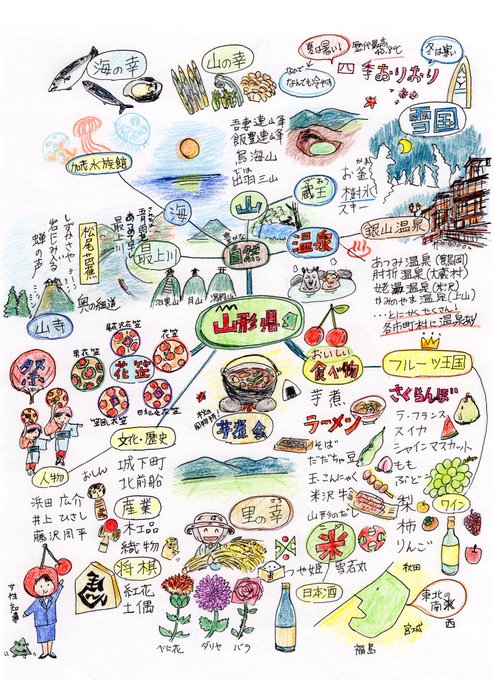 海の幸
山の幸
夏は暑い!
歴代最高
40.8℃
なので
なんでも冷やす
四季おりおり
冬は寒い
雪国
加茂水族館
吾妻連峰
飯豊連峰
鳥海山
では
出羽三山
蔵王
ざおう
かま
お釜
樹氷
スキー
海
山
豊かな
自然
温泉
銀山温泉
松尾芭蕉
しずかさや
岩にしみ入る
蝉の声
最上川
奥の細道
山寺
羽黒山
月山
湯殿山
あつみ温泉(鶴岡)
肘折温泉(大蔵村)
姥湯温泉(米沢)
かみのやま温泉(上山)
…とにかくたくさん
各市町村に温泉あり
山形県
おいしい
食べ物
フルーツ王国
さくらんぼ
ラ・フランス
スイカ
シャインマスカット
もも
ぶどう
梨
柿
りんご
ワイン
祭
花笠
花笠
文化・歴史
人物
芋煮会
秋の
風物詩!
芋煮
ラーメン
そば
だだちゃ豆
玉こんにゃく
米沢牛
山形のだし
おしん
城下町
北前船
産業
木工品
織物
将棋
紅花
土偶
浜田広介
井上ひさし
藤沢周平
女性知事
里の幸
米
つや姫
雪若丸
日本酒
べに花
ダリヤ
バラ
秋田
宮城
福島
東北の
南西